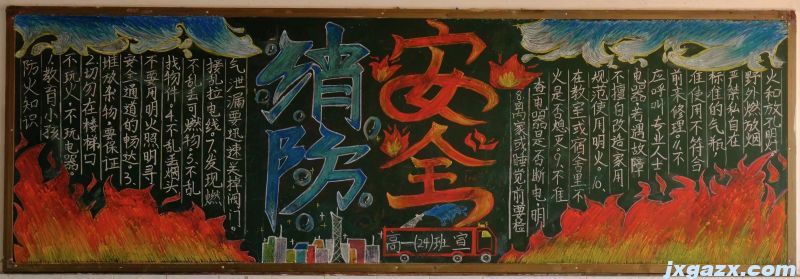 防火知识
1.教育小孩
不玩火,不玩电器
2.切勿在楼梯口
堆放杂物,要保证
安全通道的畅达。3.
不要用明火照明寻
找物件。4.不乱丢烟头
不乱丢可燃物。5.不乱
接乱拉电线。7.发现燃
气泄漏要迅速关掉阀门。
消防
安全
8.离家或睡觉前要检
查电器是否断电,明
火是否熄灭。9.不准
在教室或宿舍里不
规范使用明火。10.
不擅自改造家用
电器,若遇故障
应呼叫专业人士
前来修理。11.不
准使用不符合
标准的气瓶,
严禁私自在
野外燃放烟
火和放孔明灯
高一(24)班 宣
jxgazx.com